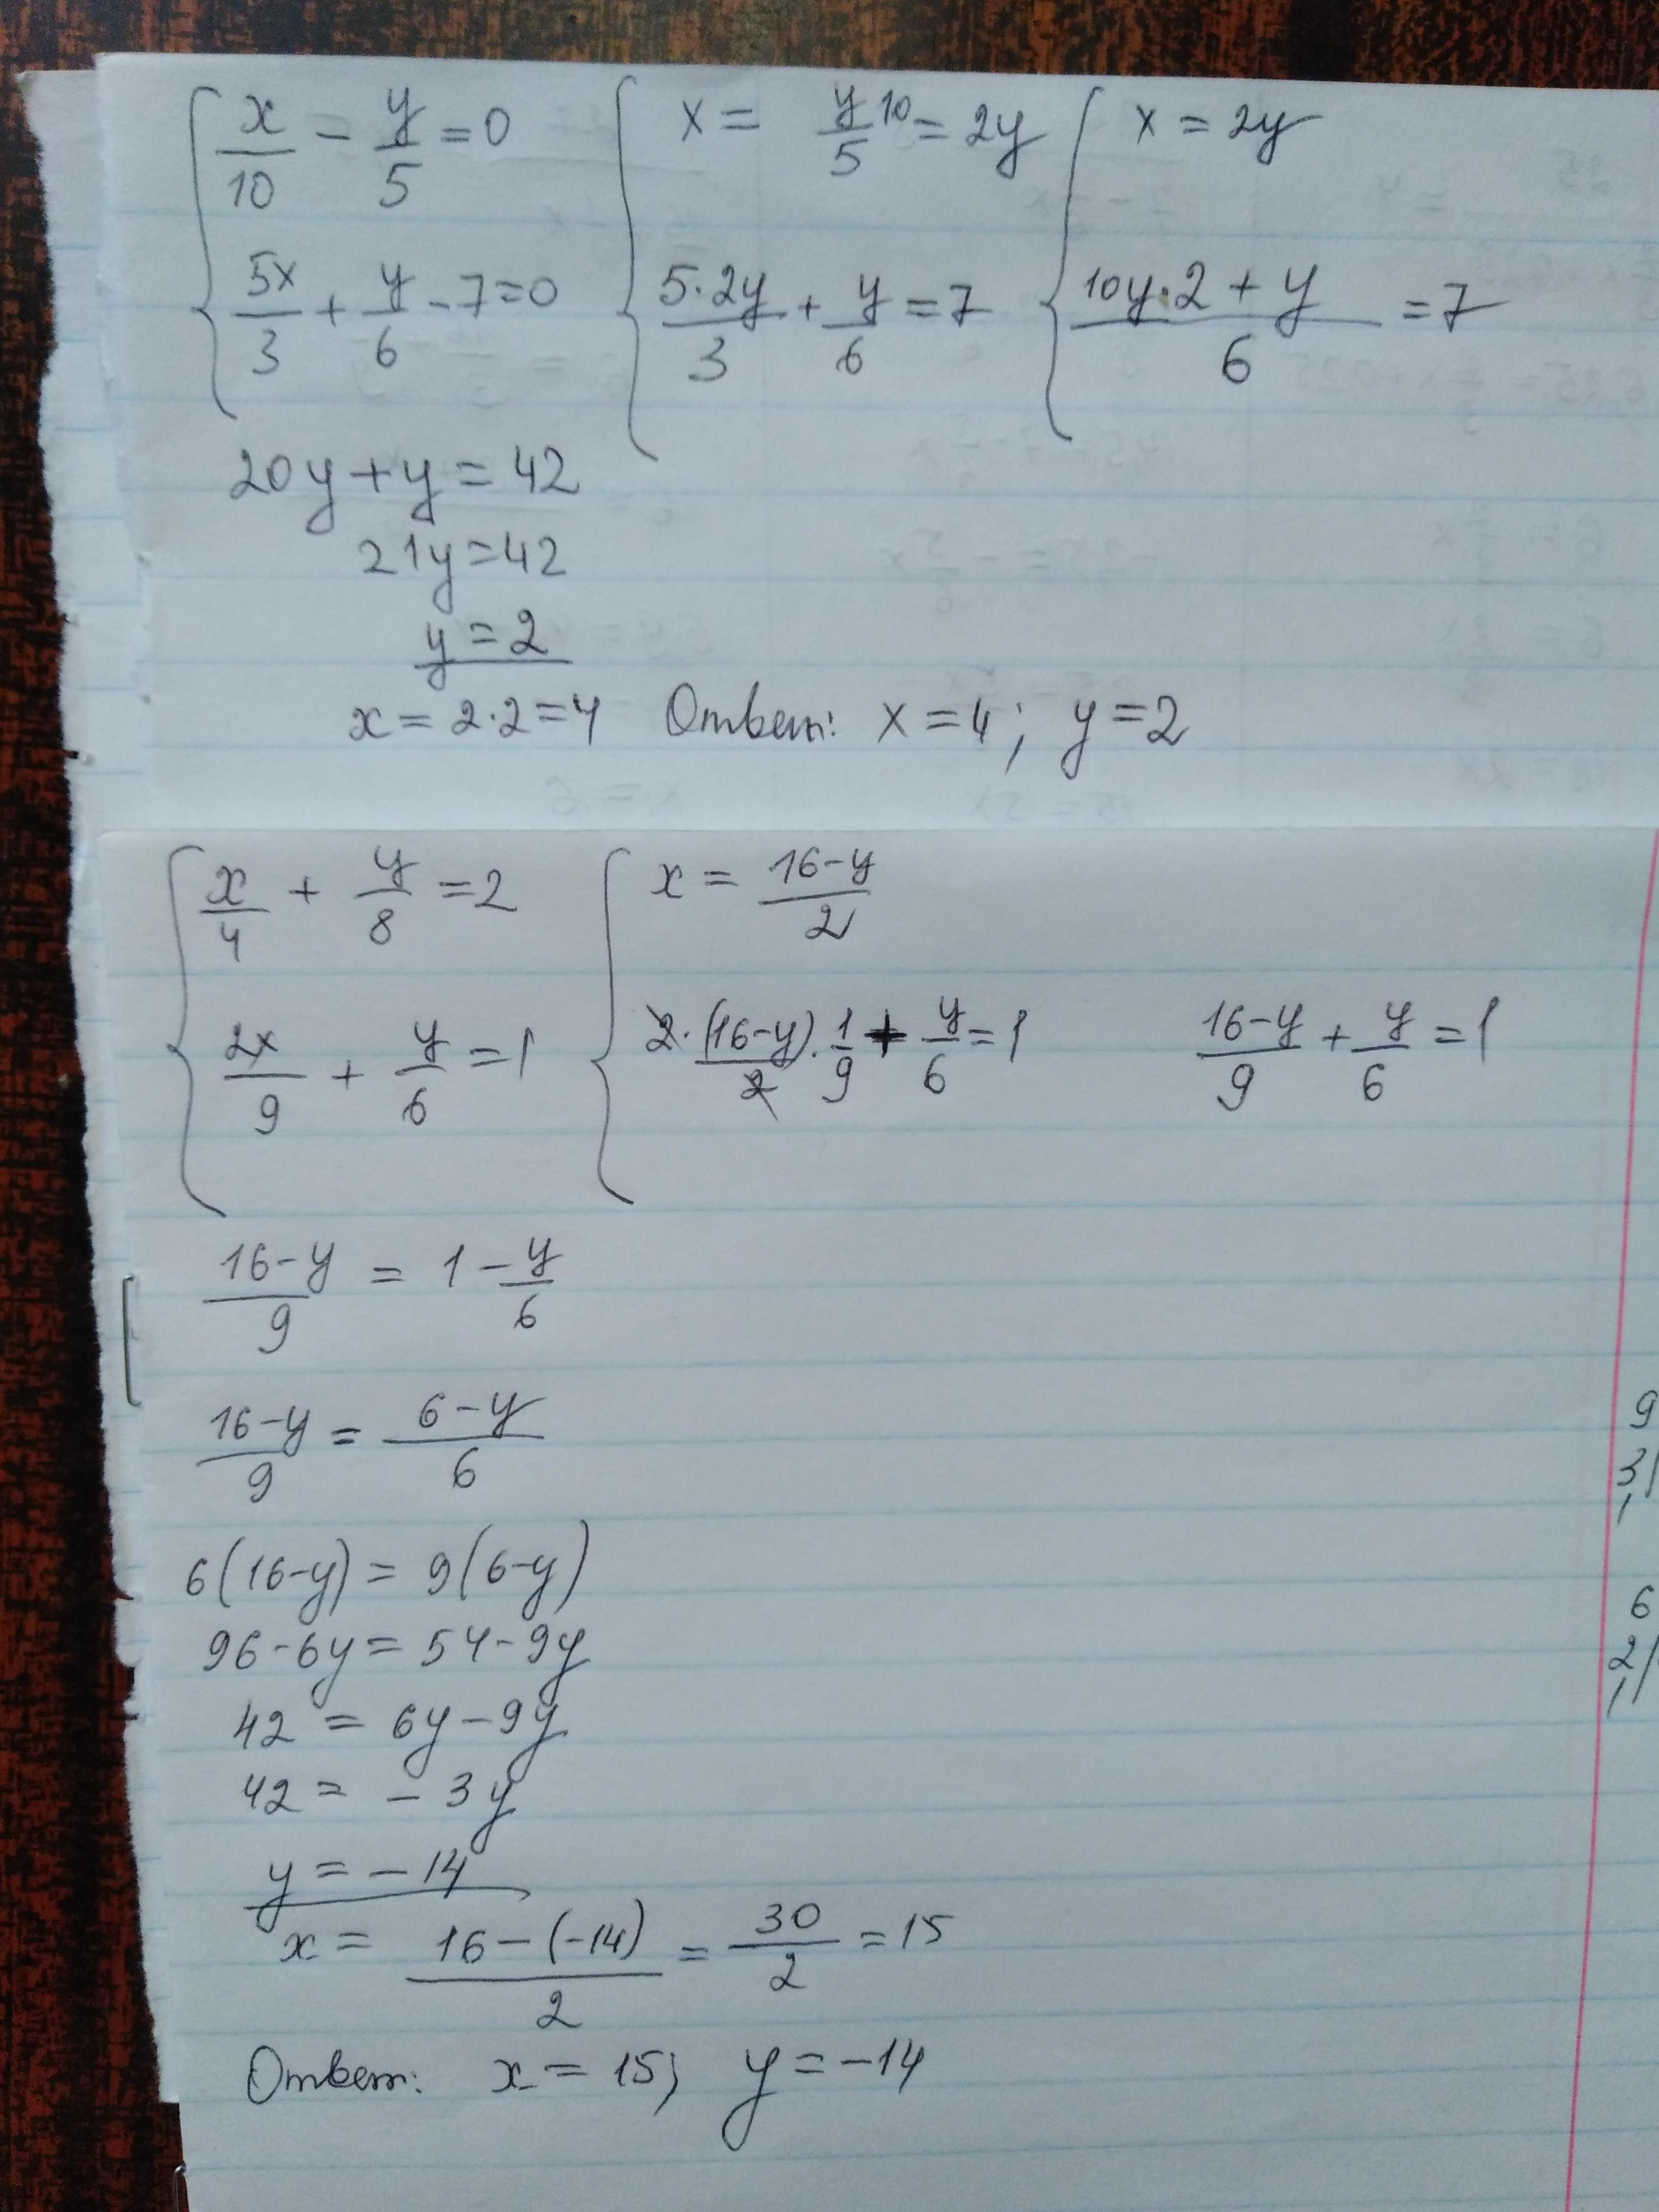 x/10 - y/5 = 0 x = y/5 10 = 2y x = 2y
5x/3 + y/6 - 7 = 0 5·2y/3 + y/6 = 7 10y·2 + y/6 = 7
20y + y = 42
21y = 42
y = 2
x = 2·2 = 4 Ответ: x = 4; y = 2
x/4 + y/8 = 2 x = 16-y/2
2x/9 + y/6 = 1 2·(16-y)/2·1/9 + y/6 = 1 16-y/9 + y/6 = 1
16-y/9 = 1 - y/6
16-y/9 = 6-y/6
6(16-y) = 9(6-y)
96-6y = 54-9y
42 = 6y-9y
42 = -3y
y = -14
x = 16-(-14)/2 = 30/2 = 15
Ответ: x = 15; y = -14
9
3
6
2